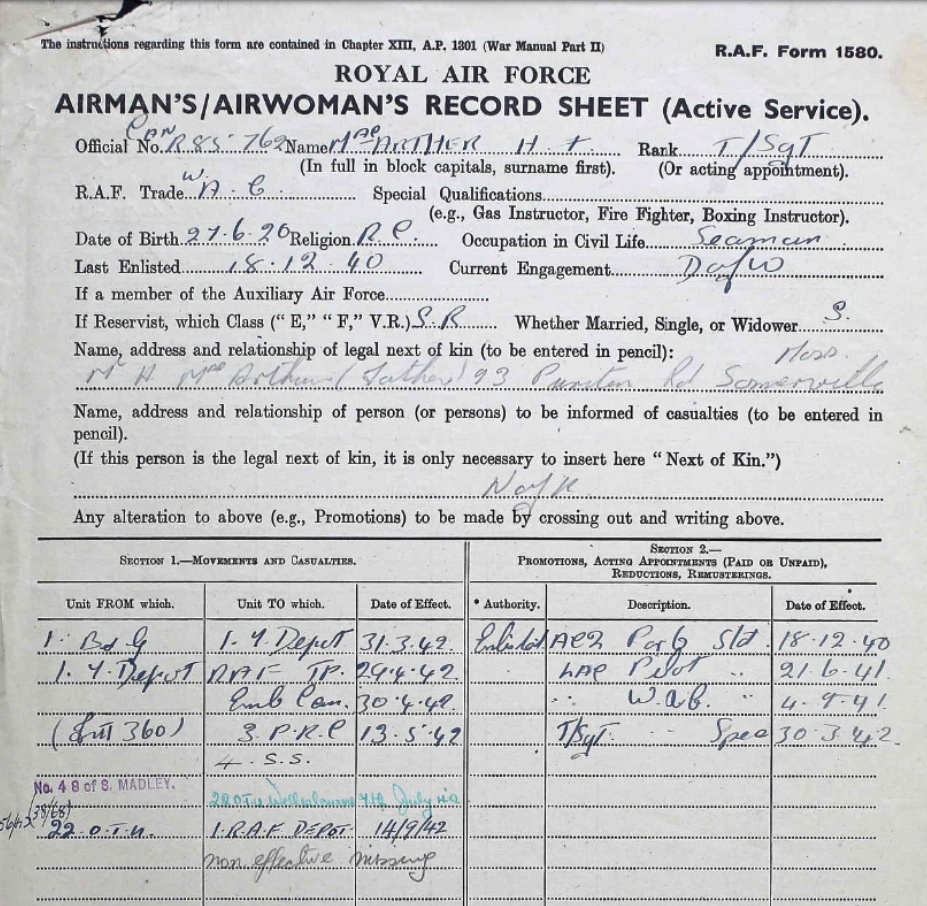 The instructions regarding this form are contained in Chapter XIII, A.P. 1301 (War Manual Part II)
R.A.F. Form 1580.
ROYAL AIR FORCE
AIRMAN'S/AIRWOMAN'S RECORD SHEET (Active Service).
Official No. CAN R85762 Name MacARTHER H. Rank T/Sgt
(In full in block capitals, surname first). (Or acting appointment).
R.A.F. Trade W.A.G. Special Qualifications
(e.g., Gas Instructor, Fire Fighter, Boxing Instructor).
Date of Birth 27.6.20 Religion R.C. Occupation in Civil Life Seaman
Last Enlisted 18.12.40 Current Engagement DofW
If a member of the Auxiliary Air Force
If Reservist, which Class ("E," "F," V.R.) S.R. Whether Married, Single, or Widower S.
Name, address and relationship of legal next of kin (to be entered in pencil): Mass.
Mr H. MacArthur (Father) 93 Puritan Rd Somerville
Name, address and relationship of person (or persons) to be informed of casualties (to be entered in
pencil).
(If this person is the legal next of kin, it is only necessary to insert here "Next of Kin.")
N of K
Any alteration to above (e.g., Promotions) to be made by crossing out and writing above.
SECTION 1.—MOVEMENTS AND CASUALTIES. SECTION 2.—
PROMOTIONS, ACTING APPOINTMENTS (PAID OR UNPAID),
REDUCTIONS, REMUSTERINGS.
Unit FROM which. Unit TO which. Date of Effect. * Authority. Description. Date of Effect.
1. B&G 1. Y. Depot 31.3.42 Enlisted AC2 Std. 18.12.40
1. Y. Depot RAF TP. 29.4.42 LAC Pilot " 21.6.41
Emb Can. 30.4.42 " W.A.G. 4.9.41
360) 3 P.R.C 13.5.42 T/Sgt. " Spec 30.3.42
4. S.S.
No. 4 S of S. MADLEY. 22 OTU Wellesbourne 7th July
22. O.T.U. 1. R.A.F DEPOT 14/9/42
non effective missing